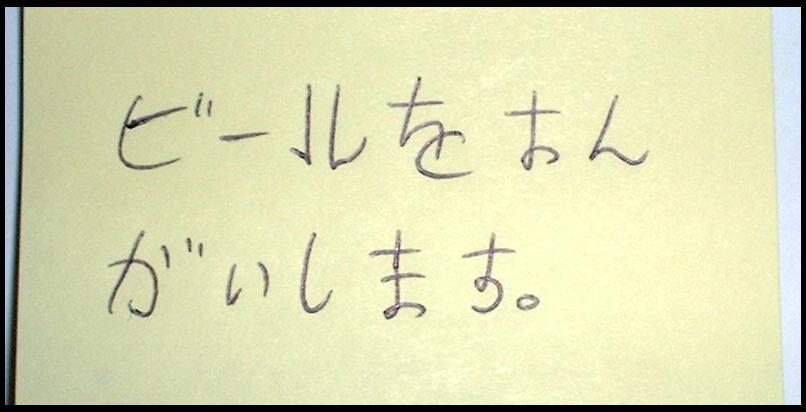 ビールをおん
がいします。